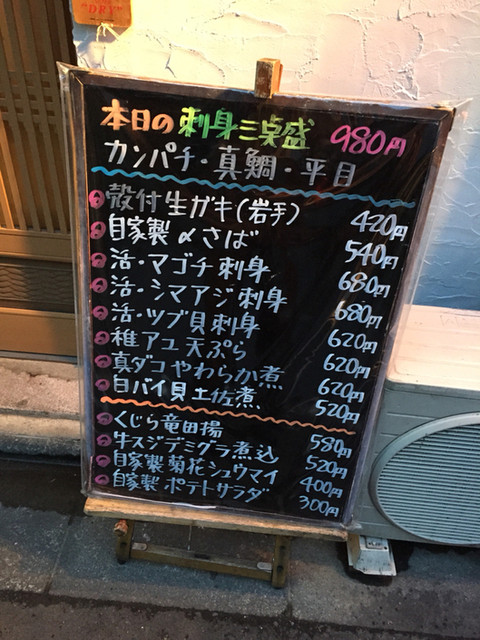 "DRY"
本日の刺身三点盛 980円
カンパチ・真鯛・平目
殻付生ガキ(岩手) 420円
自家製〆さば 540円
活・マゴチ刺身 680円
活・シマアジ刺身 680円
活・ツブ貝刺身 620円
稚アユ天ぷら 620円
真ダコやわらか煮 620円
白バイ貝土佐煮 520円
くじら竜田揚 580円
牛スジデミグラ煮込 520円
自家製菊花シュウマイ 400円
自家製ポテトサラダ 300円